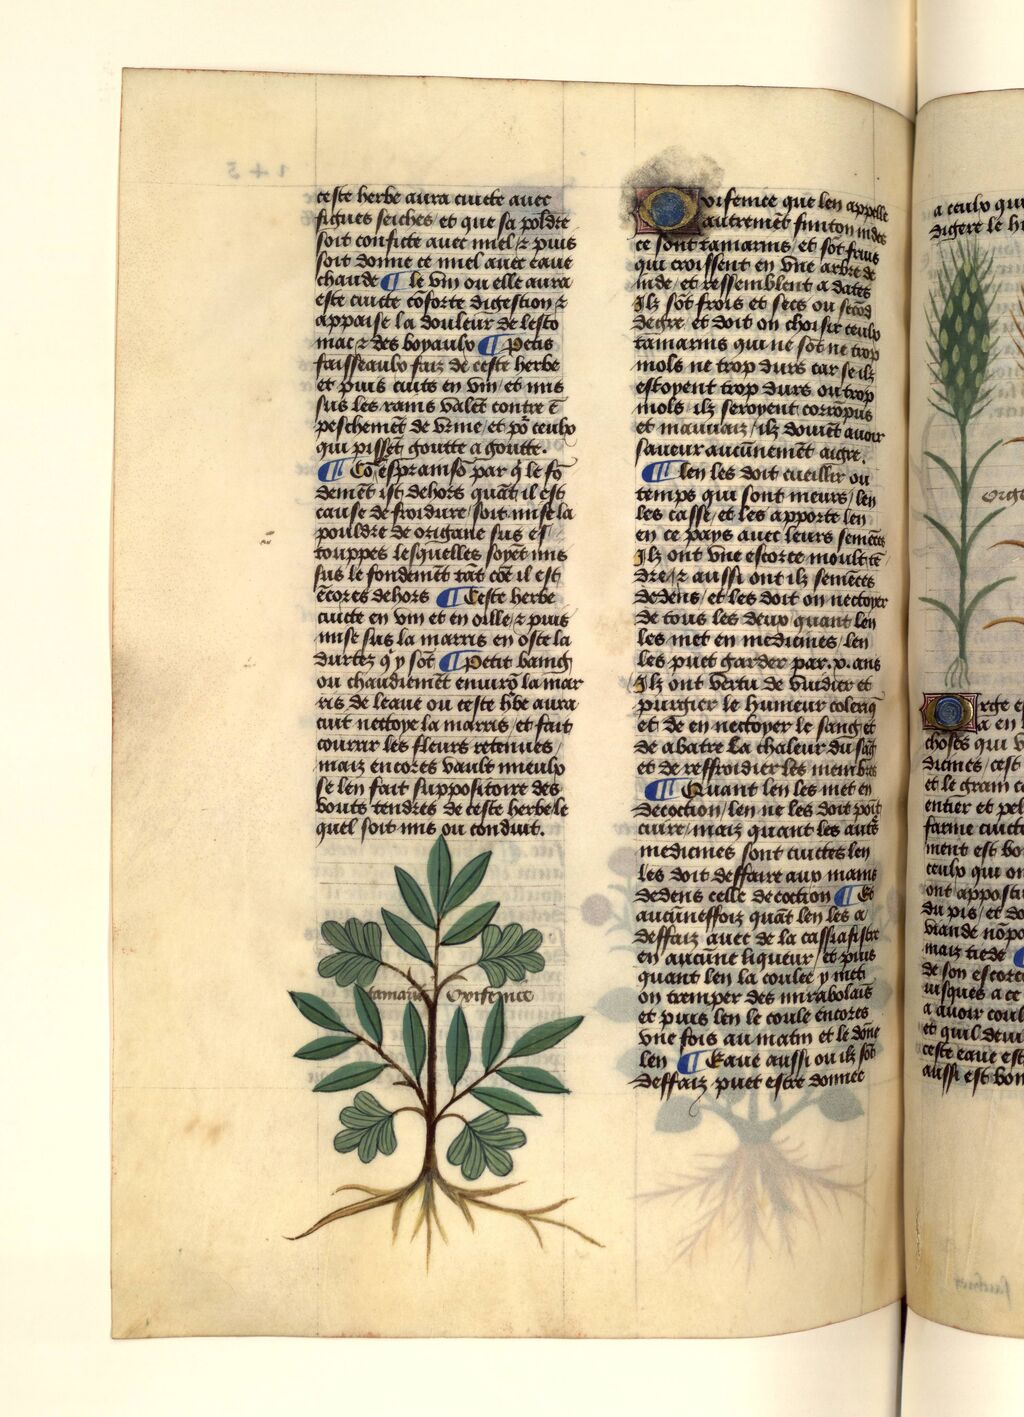 ceste herbe aura cuicte avec
figues seiches / et que sa poldre
soit conficte avec miel / z puis
soit donne ce miel avec eaue
chaude ¶ le vin ou elle aura
este cuicte cõforte digestion z
appaise la douleur de lesto
mac z des boyaulx ¶ Petis
faisseaulx faiz de ceste herbe
et puis cuits en vin / et mis
sus les rains valẽt contre ẽ
peschemẽt de vrine / et põ ceulx
qui pissẽt goutte a goutte.
par q̃ le fõ
demẽt ist dehors quãt il est
cause de froidure / soit mise la
pouldre de origane sus es
touppes lesquelles soyẽt mis
sus le fondemẽt tãt cõe il est
ẽcores dehors ¶ Ceste herbe
cuicte en vin et en oille / z puis
mise sus la marris en oste la
durtez q̃ y sõt ¶ Petit baing
ou chaudiemẽt enuirõ la mar
ris de leaue ou ceste hbe aura
cuit nettoye la marris / et fait
courir les fleurs retenues /
maiz encores vault mieulx
se len fait suppositoire des
bouts tendres de ceste herbe le
quel soit mis ou conduit.
tamaris Oxifenice
Oxifenice que len appelle
autremẽt finiton indes
ce sont tamarins / et sõt fruis
qui croissent en vne arbre de
inde / et ressemblent a dates
Ilz sõt frois et secs ou secõd
degre / et doit on choisir ceulx
tamarins qui ne sõt ne trop
mols ne trop durs car se ilz
estoyent trop durs ou trop
mols / ilz seroyent corrõpus
et mauuaiz / ilz doiuẽt auoir
saueur aucunement aigre.
¶ len les doit cueillir ou
temps qui sont meurs / len
les casse / et les apporte len
en ce pays avec leurs semẽces
Ilz ont vne escorce moult tẽ
dre / z aussi ont ilz semẽces
dedens / et les doit on nectoyer
de tous les deux quant len
les met en medicines / len
les puet garder par .x. ans
Ilz ont vertu de vuidier et
purgier le humeur coleriq̃
et de en nectoyer le sang et
de abatre la chaleur du sãg
et de reffroidier les membres
¶ Quant len les met en
decoction / len ne les doit poĩt
cuire / maiz quant les autꝭ
medicines sont cuictes len
les doit deffaire aux mains
dedens celle decoction ¶ Et
aucuneffoiz quãt len les a
deffaiz avec de la cassiafistre
en aucune liqueur / et puis
quant len la coulee y met
on tremper des mirabolans
et puis len le coule encores
vne fois au matin et le dõne
len ¶ Eaue aussi ou ilz sõt
deffaiz puet estre donnee
a ceulx qui
digere le
Orge
Orge es
a en
choses qui
dicines / cest
et le grain
entier et pel
farine cuicte
ment est bo
ceulx qui on
ont appostu
du pis / et do
viande nõpo
maiz tiede ¶
de son escorce
iusques a ce
a auoir coul
et quil deui
ceste eaue est
aussi est bon